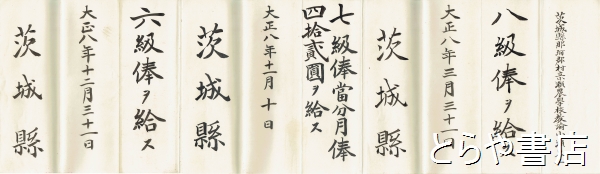 茨城縣那珂郡村立小瀬農學校教諭
八級俸ヲ給ス
大正八年三月三十一日
茨城縣
七級俸當分月俸
四拾貳圓ヲ給ス
大正八年十一月十日
茨城縣
六級俸ヲ給ス
大正八年十二月三十一日
茨城縣
とらや書店